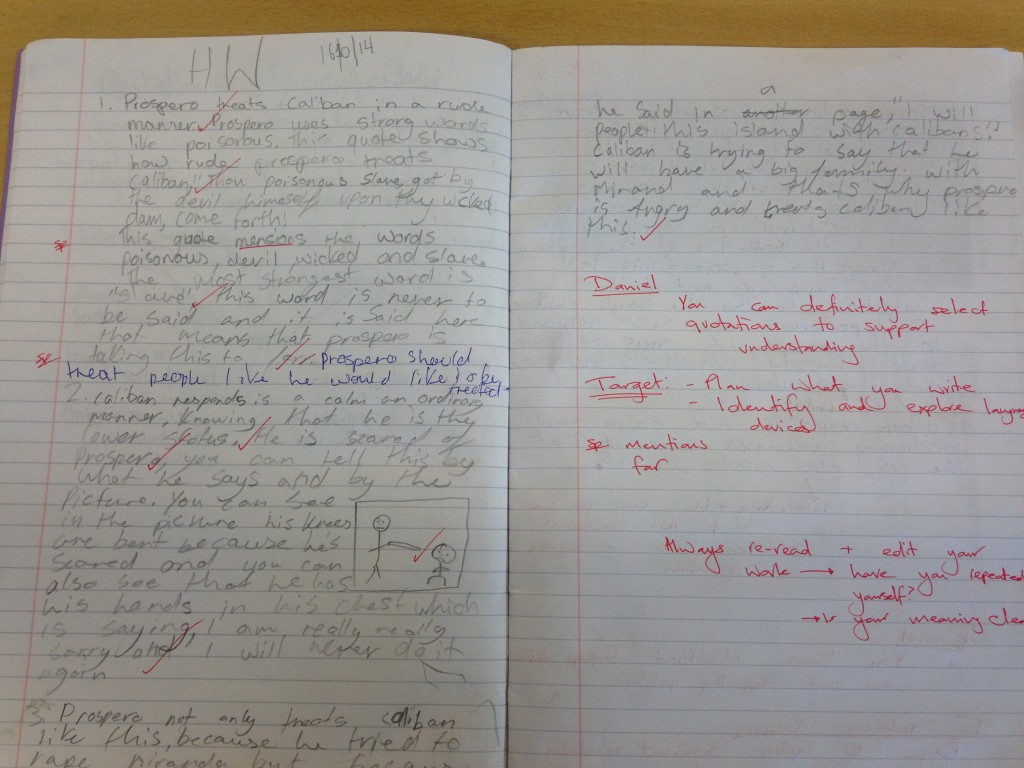 HW
16/10/14
1. Prospero treats Caliban in a rude
manner. Prospero uses strong words
like poisonous. This quote shows
how rude prospero treats
Caliban," Thou poisonous slave, got by
the devil himself upon thy wicked
dam, come forth!
sp
This quote mensions the, words
poisonous, devil wicked and slave.
the most strongest word is
This word is never to
be said and it is said here
that means that prospero is
sp
taking this to
prospero should
treat people like he would like to be
treated.
2. Caliban responds is a calm an ordinary
manner, knowing that he is the
lower status. He is scared of
Prospero, you can tell this by
what he says and by the
Picture. You can see
in the picture his knees
are bent because he's
scared and you can
also see that he has
his hands in his chest which
is saying, I am, really really
sorry and I will never do it
again
3. Prospero not only treats caliban
like this, because he tried to
rape miranda but
a
he said in another page," I will
people this island with calibans".
Caliban is trying to say that he
will have a big family with
Mirand and thats why prospero
is angry and treats caliban like
this.
Daniel
You can definitely select
quotations to support
understanding
Target: - Plan what you write
- Identify and explore
devices
sp mentions
far
Always re-read + edit your
work → have you repeated
yourself?
→ Is your meaning clea